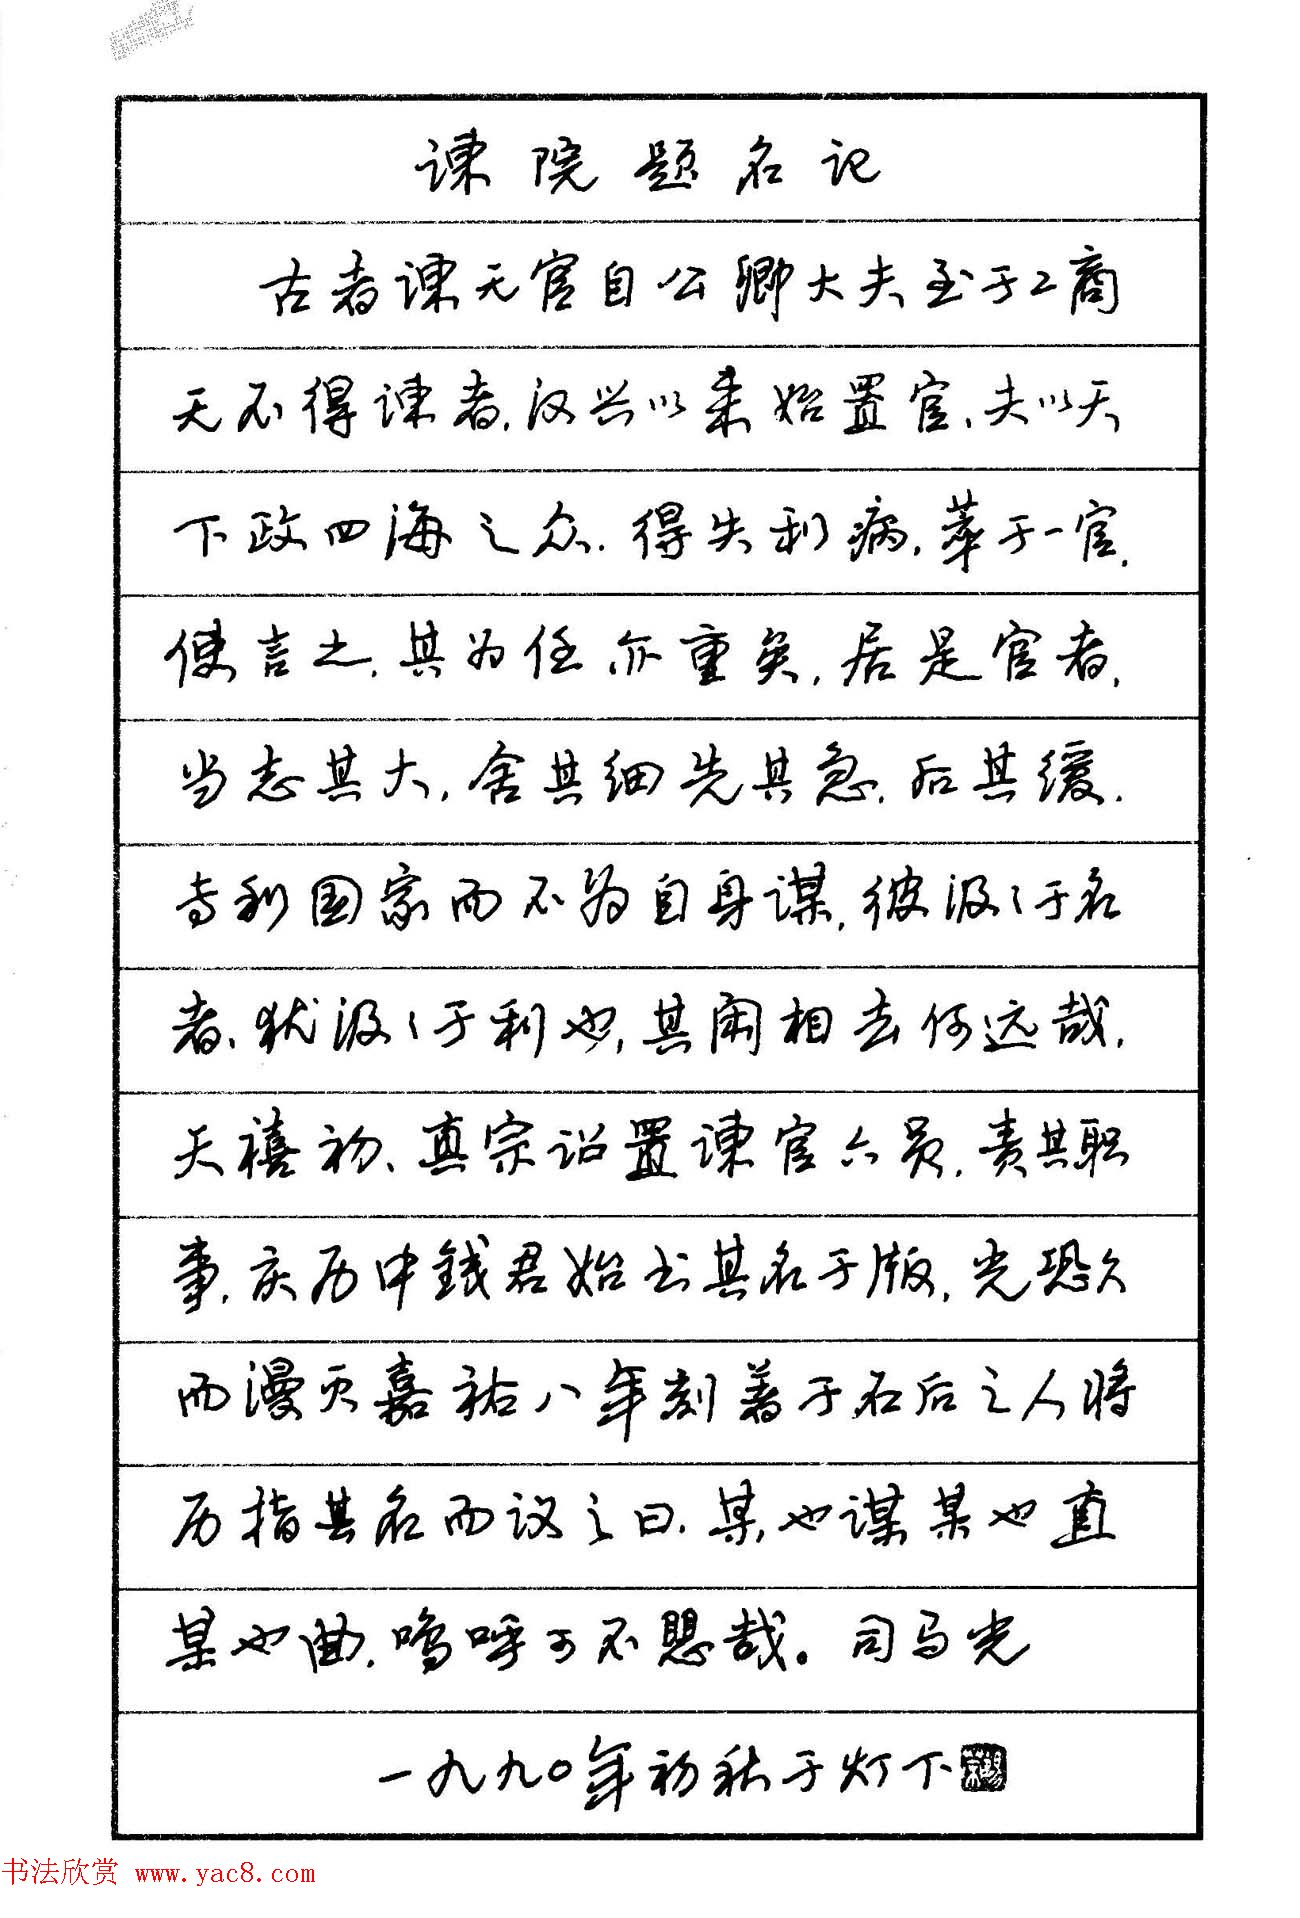 谏院题名记
古者谏无官自公卿大夫至于工商
无不得谏者，汉兴以来始置官、夫以天
下政四海之众．得失利病，萃于一官．
使言之，其为任亦重矣，居是官者，
当志其大，舍其细先其急．后其缓．
专利国家而不为自身谋，彼汲汲于名
者、犹汲汲于利也，其间相去何远哉．
天禧初、真宗诏置谏官六员，责其职
事．庆历中钱君始书其名于版，光恐久
而漫灭嘉祐八年刻著于石后之人将
历指其名而议之曰．某也谋某也直
某也曲．呜呼可不惧哉。司马光
一九九〇年初秋于灯下
书法欣赏 www.yac8.com